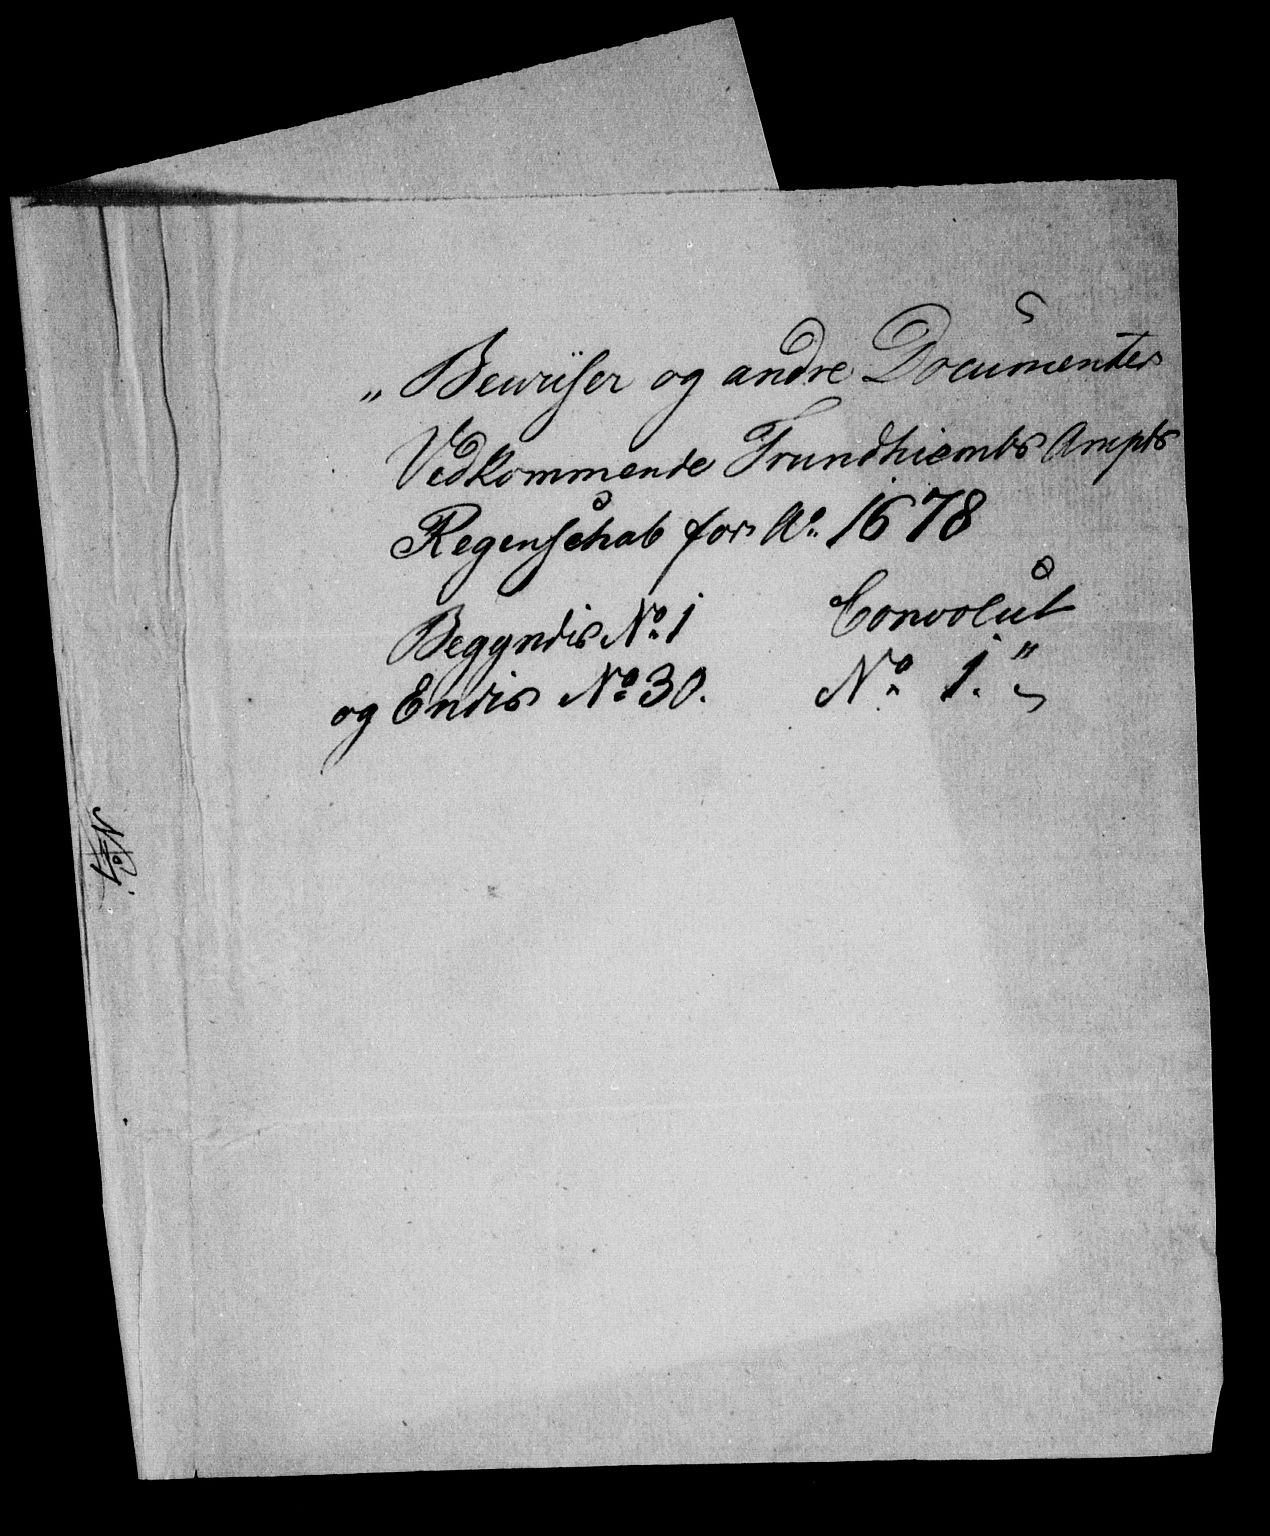 „ Bewiiser og andre Documenter
Vedkommende Trundhiembs Ampts
Regenschab for Ao. 1678
Begyndis No. 1 Convolut
og Endis No. 30. No. 1."
No. 1.